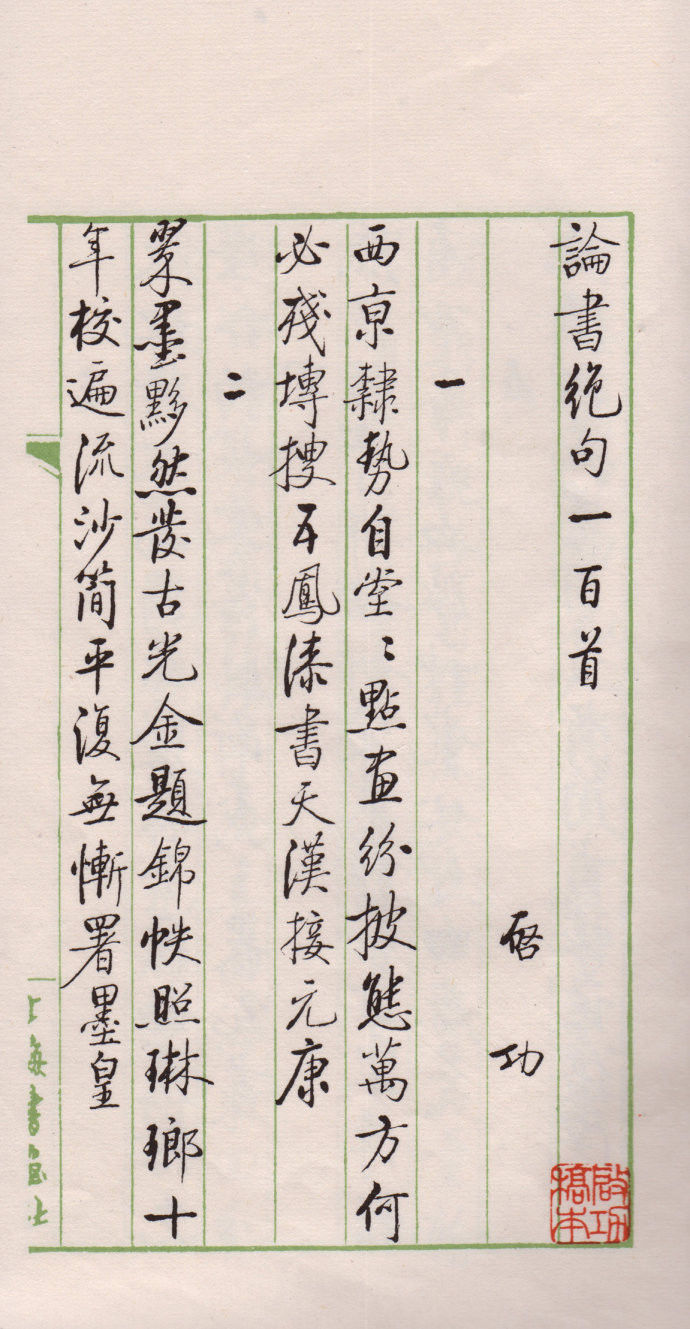 論書絕句一百首
啓功
啟功稿本
一
西京隸勢自堂〻點畫紛披態萬方何
必殘塼搜五鳳漆書天漢接元康
二
翠墨黟然發古光金題錦帙照琳瑯十
年校遍流沙簡平復無慚署墨皇
上海書畫社